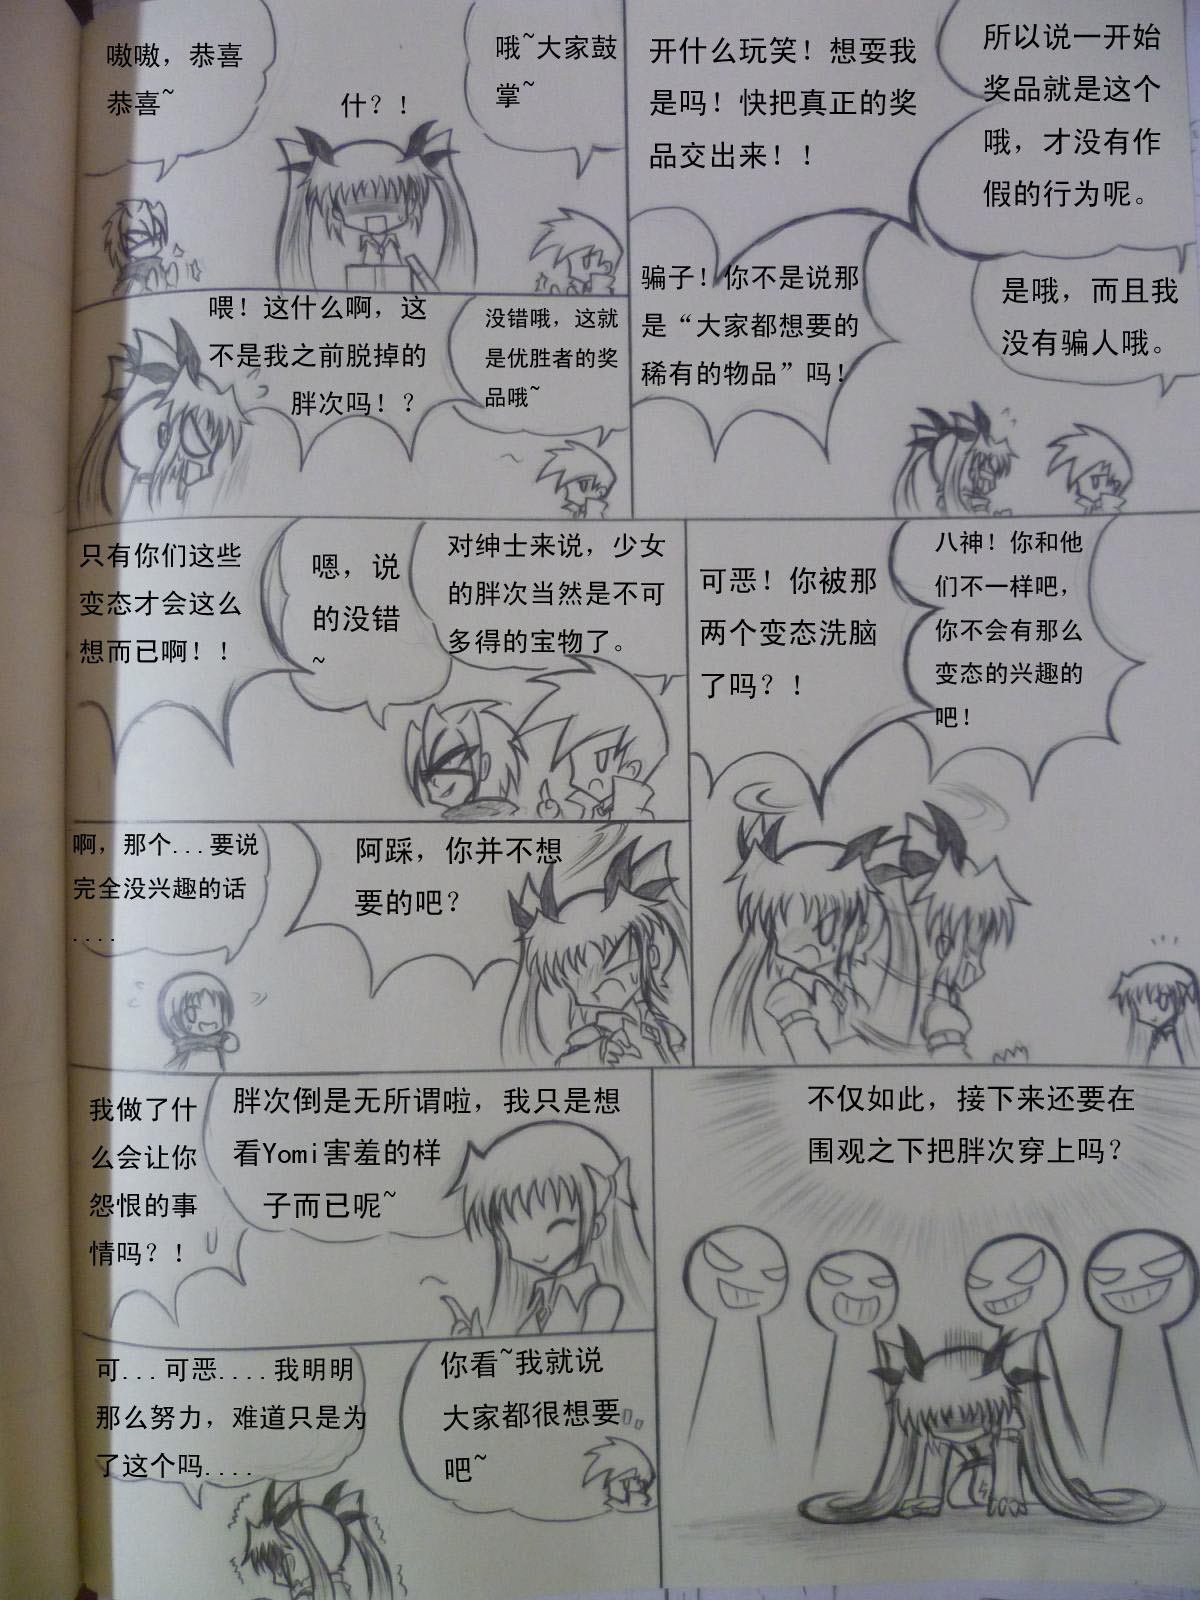 嗷嗷，恭喜
恭喜~
什？！
哦~大家鼓
掌~
喂！这什么啊，这
不是我之前脱掉的
胖次吗！？
没错哦，这就
是优胜者的奖
品哦~
开什么玩笑！想耍我
是吗！快把真正的奖
品交出来！！
所以说一开始
奖品就是这个
哦，才没有作
假的行为呢。
骗子！你不是说那
是“大家都想要的
稀有的物品”吗！
是哦，而且我
没有骗人哦。
对绅士来说，少女
的胖次当然是不可
多得的宝物了。
嗯，说
的没错
~
只有你们这些
变态才会这么
想而已啊！！
阿踩，你并不想
要的吧？
啊，那个...要说
完全没兴趣的话
....
可恶！你被那
两个变态洗脑
了吗？！
八神！你和他
们不一样吧，
你不会有那么
变态的兴趣的
吧！
胖次倒是无所谓啦，我只是想
看Yomi害羞的样
子而已呢~
我做了什
么会让你
怨恨的事
情吗？！
你看~我就说
大家都很想要
吧~
可...可恶....我明明
那么努力，难道只是为
了这个吗....
不仅如此，接下来还要在
围观之下把胖次穿上吗？